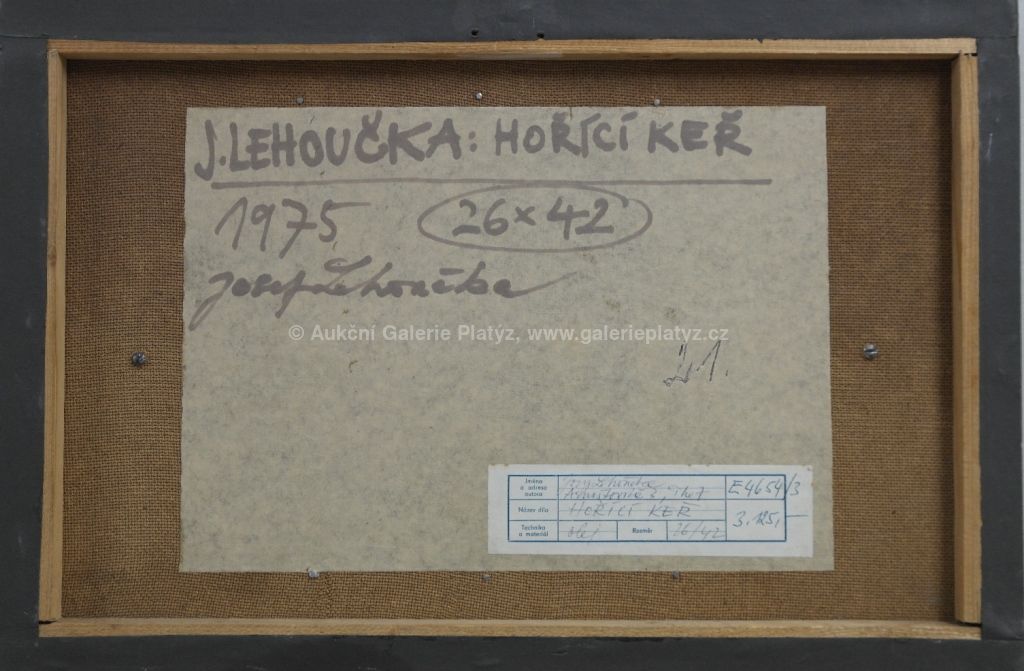 J. LEHOUČKA: HOŘÍCÍ KEŘ
1975 26×42
Josef Lehoučka
© Aukční Galerie Platýz, www.galerieplatyz.cz
21.
Jméno a adresa autora E4654/3
Název díla HOŘÍCÍ KEŘ 3.125,—
Technika a materiál olej Rozměr 26/42